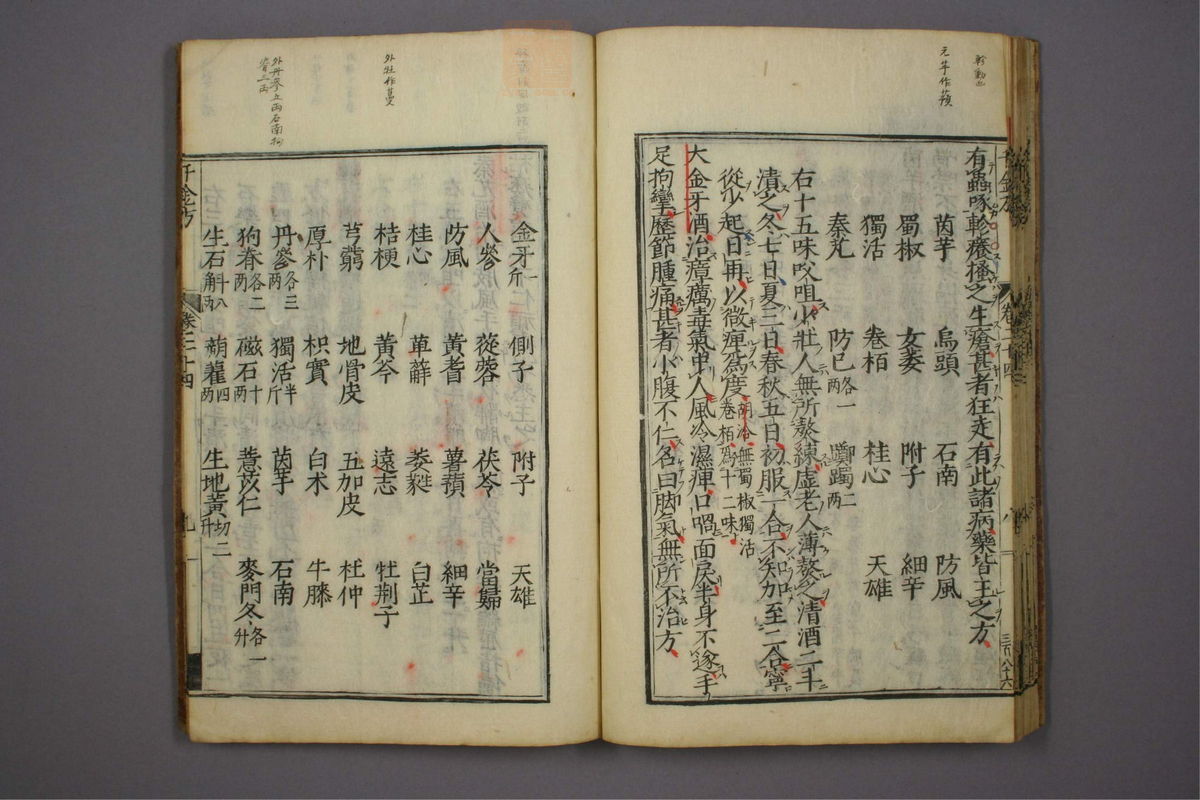 軫動也
元芋作蕷
有蟲啄軫癢搔之生瘡甚者狂走有此諸病藥皆主之方
茵芋 烏頭 石南 防風
蜀椒 女萎 附子 細辛
獨活 卷栢 桂心 天雄
秦艽 防已各一兩 躑躅二兩
右十五味㕮咀少壯人無所熬練虛老人薄熬之清酒二斗
漬之冬七日夏三日春秋五日初服一合不知加至二合寧
從少起日再以微痺爲度胡洽無蜀椒獨活卷栢爲十二味
大金牙酒治瘴癘毒氣中人風冷濕痺口喎面戾半身不遂手
足拘攣歷節腫痛甚者小腹不仁名曰脚氣無所不治方
外牡作蔓
外丹參五兩石南
金牙一斤 側子 附子 天雄
人參 蓯蓉 茯苓 當歸
防風 黃耆 薯蕷 細辛
桂心 萆薢 萎蕤 白芷
桔梗 黃芩 遠志 牡荆子
芎藭 地骨皮 五加皮 杜仲
厚朴 枳實 白朮 牛膝
丹參各三兩 獨活半斤 茵芋 石南
狗脊各二兩 磁石十兩 薏苡仁 麥門冬各一升
生石斛八兩 蒴藋四兩 生地黃切二升
千金方 卷二十四 九